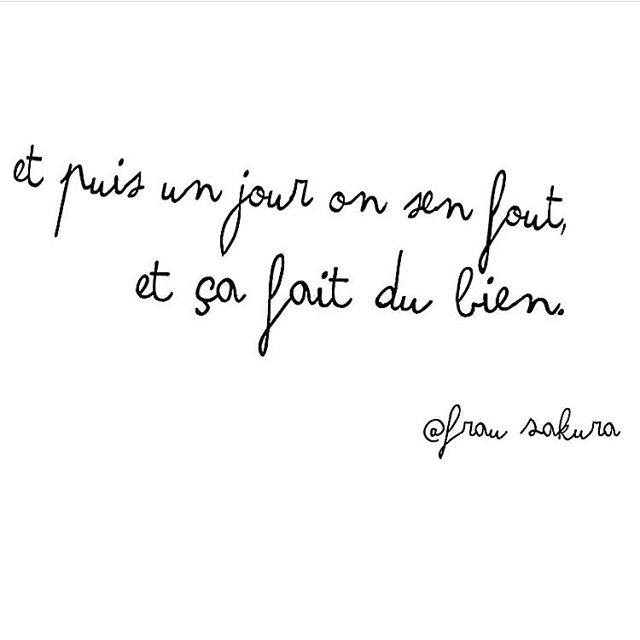 et puis un jour on sen fout,
et ça fait du bien.
@frau sakura